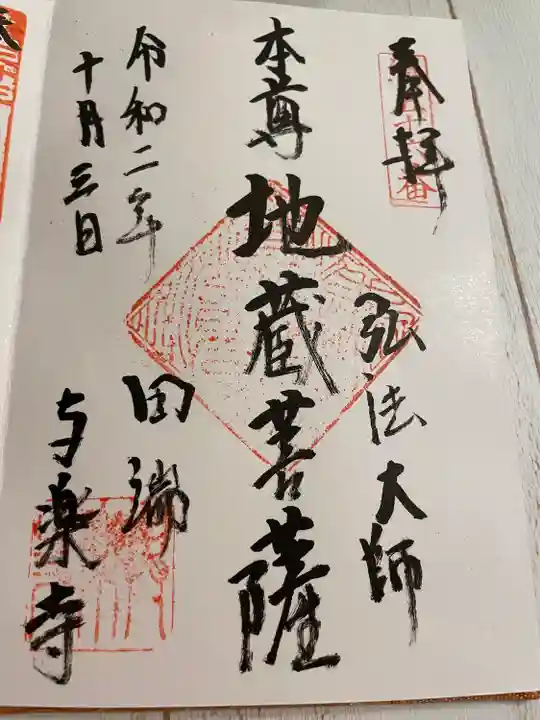 奉拝
弘法大師
本尊 地蔵菩薩
令和二年
十月三日
田端
与楽寺